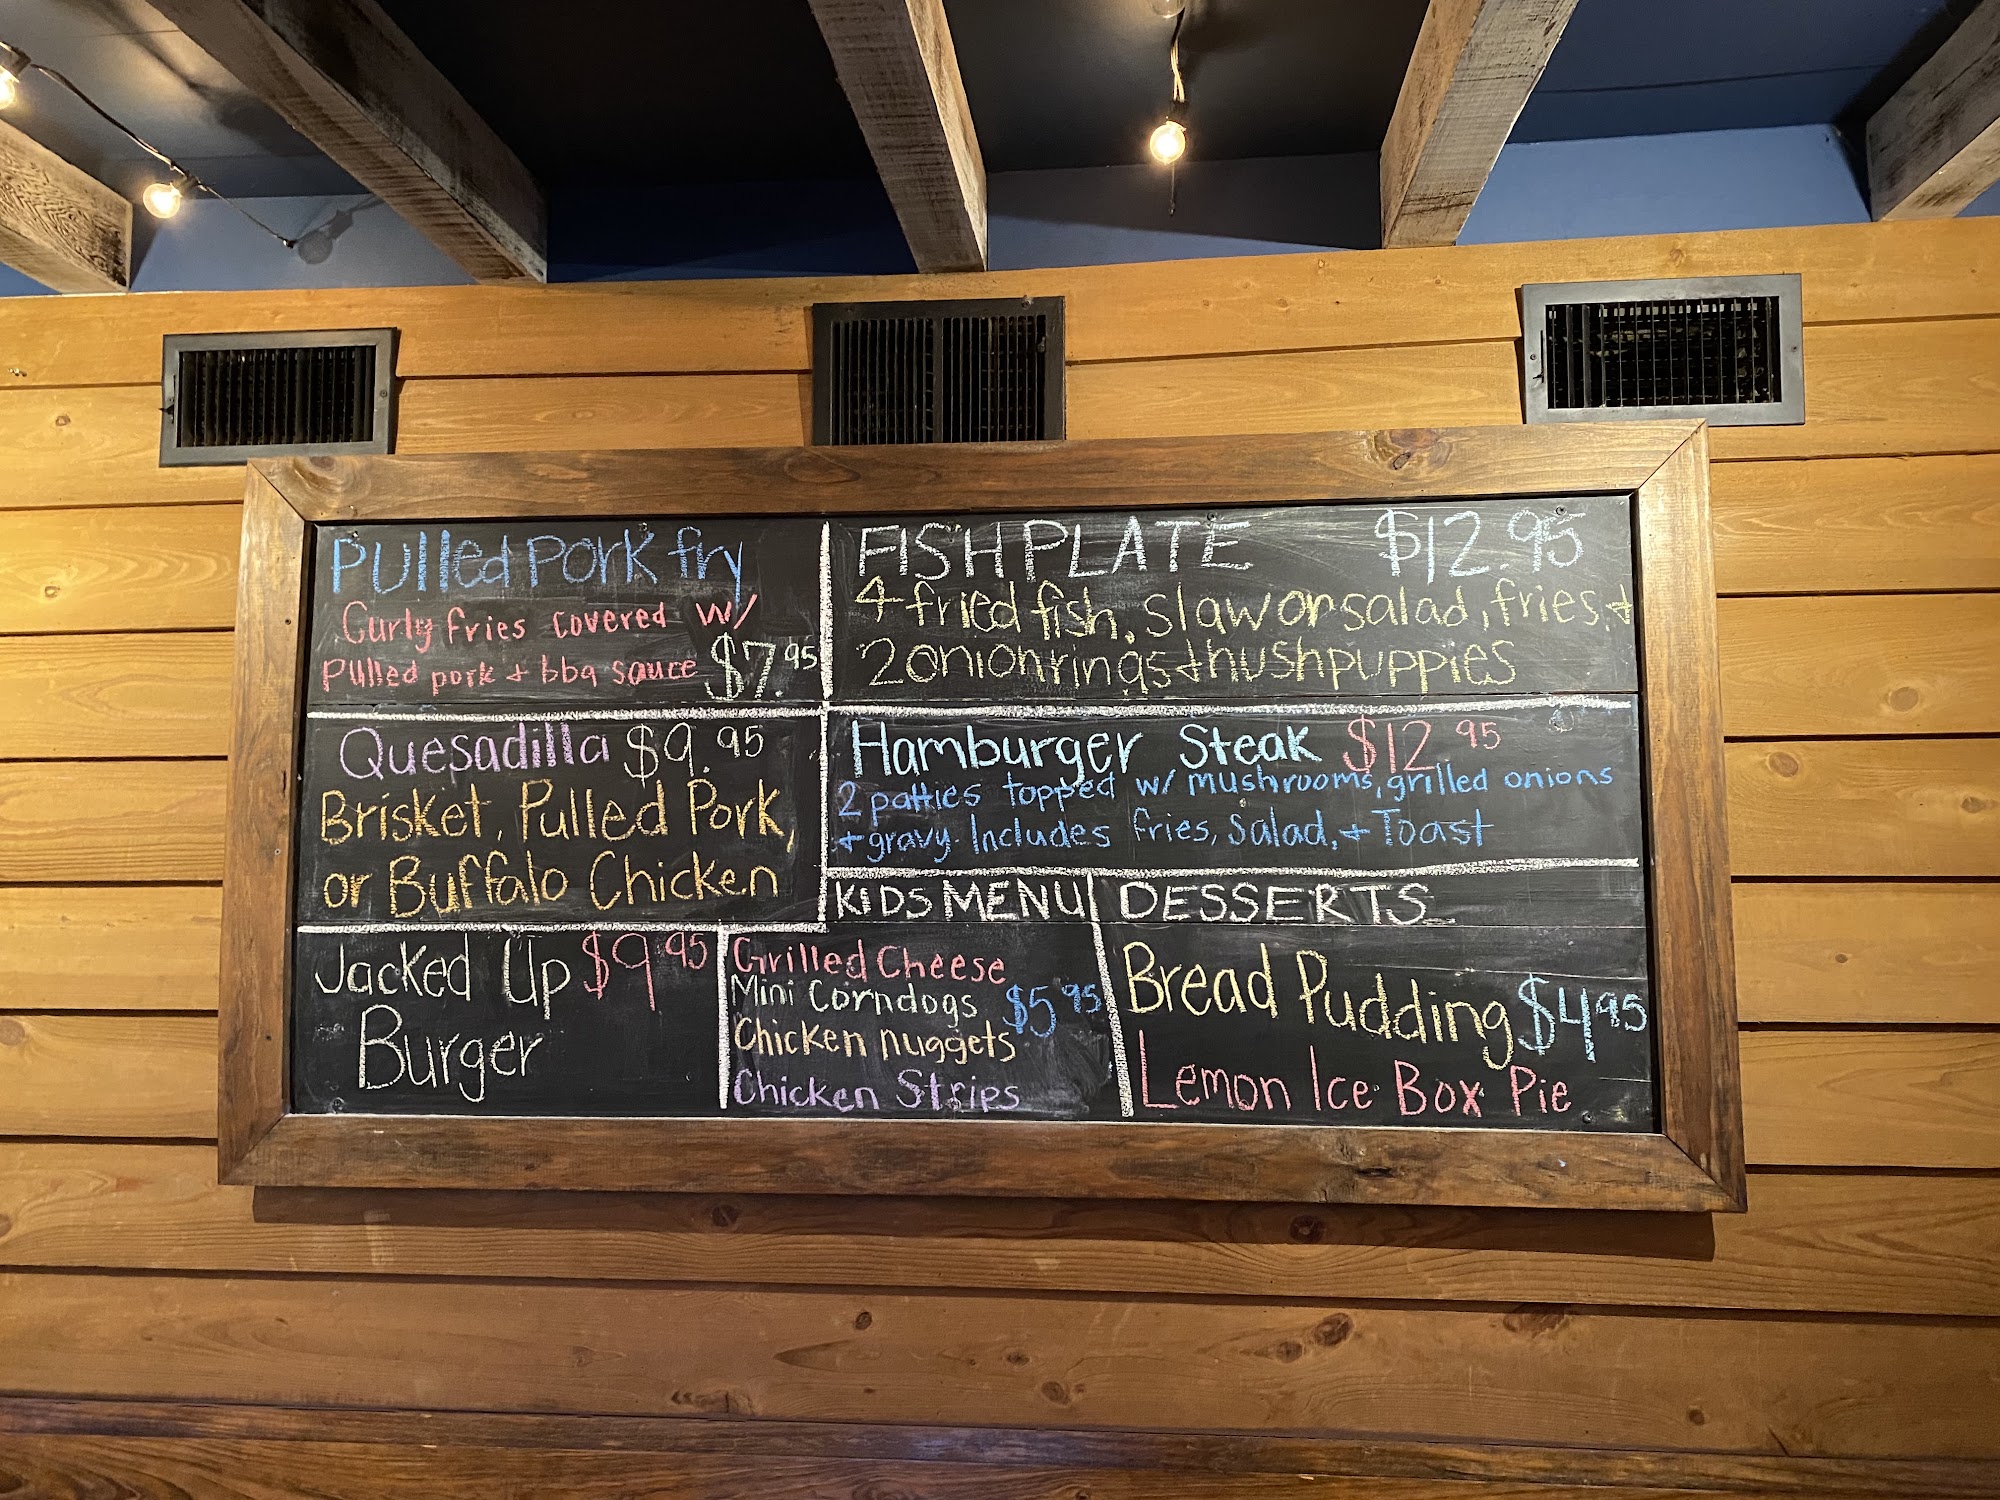 Pulled Pork fry
Curly fries covered w/
pulled pork + bbq sauce $7.95
FISH PLATE $12.95
4 fried fish, slaw or salad, fries, +
2 onion rings + hushpuppies
Quesadilla $9.95
Brisket, Pulled Pork,
or Buffalo Chicken
Hamburger Steak $12.95
2 patties topped w/ mushrooms, grilled onions
+ gravy. Includes fries, Salad, + Toast
Jacked Up $9.95
Burger
KIDS MENU
Grilled Cheese
Mini Corndogs $5.95
Chicken nuggets
Chicken Strips
DESSERTS
Bread Pudding $4.95
Lemon Ice Box Pie